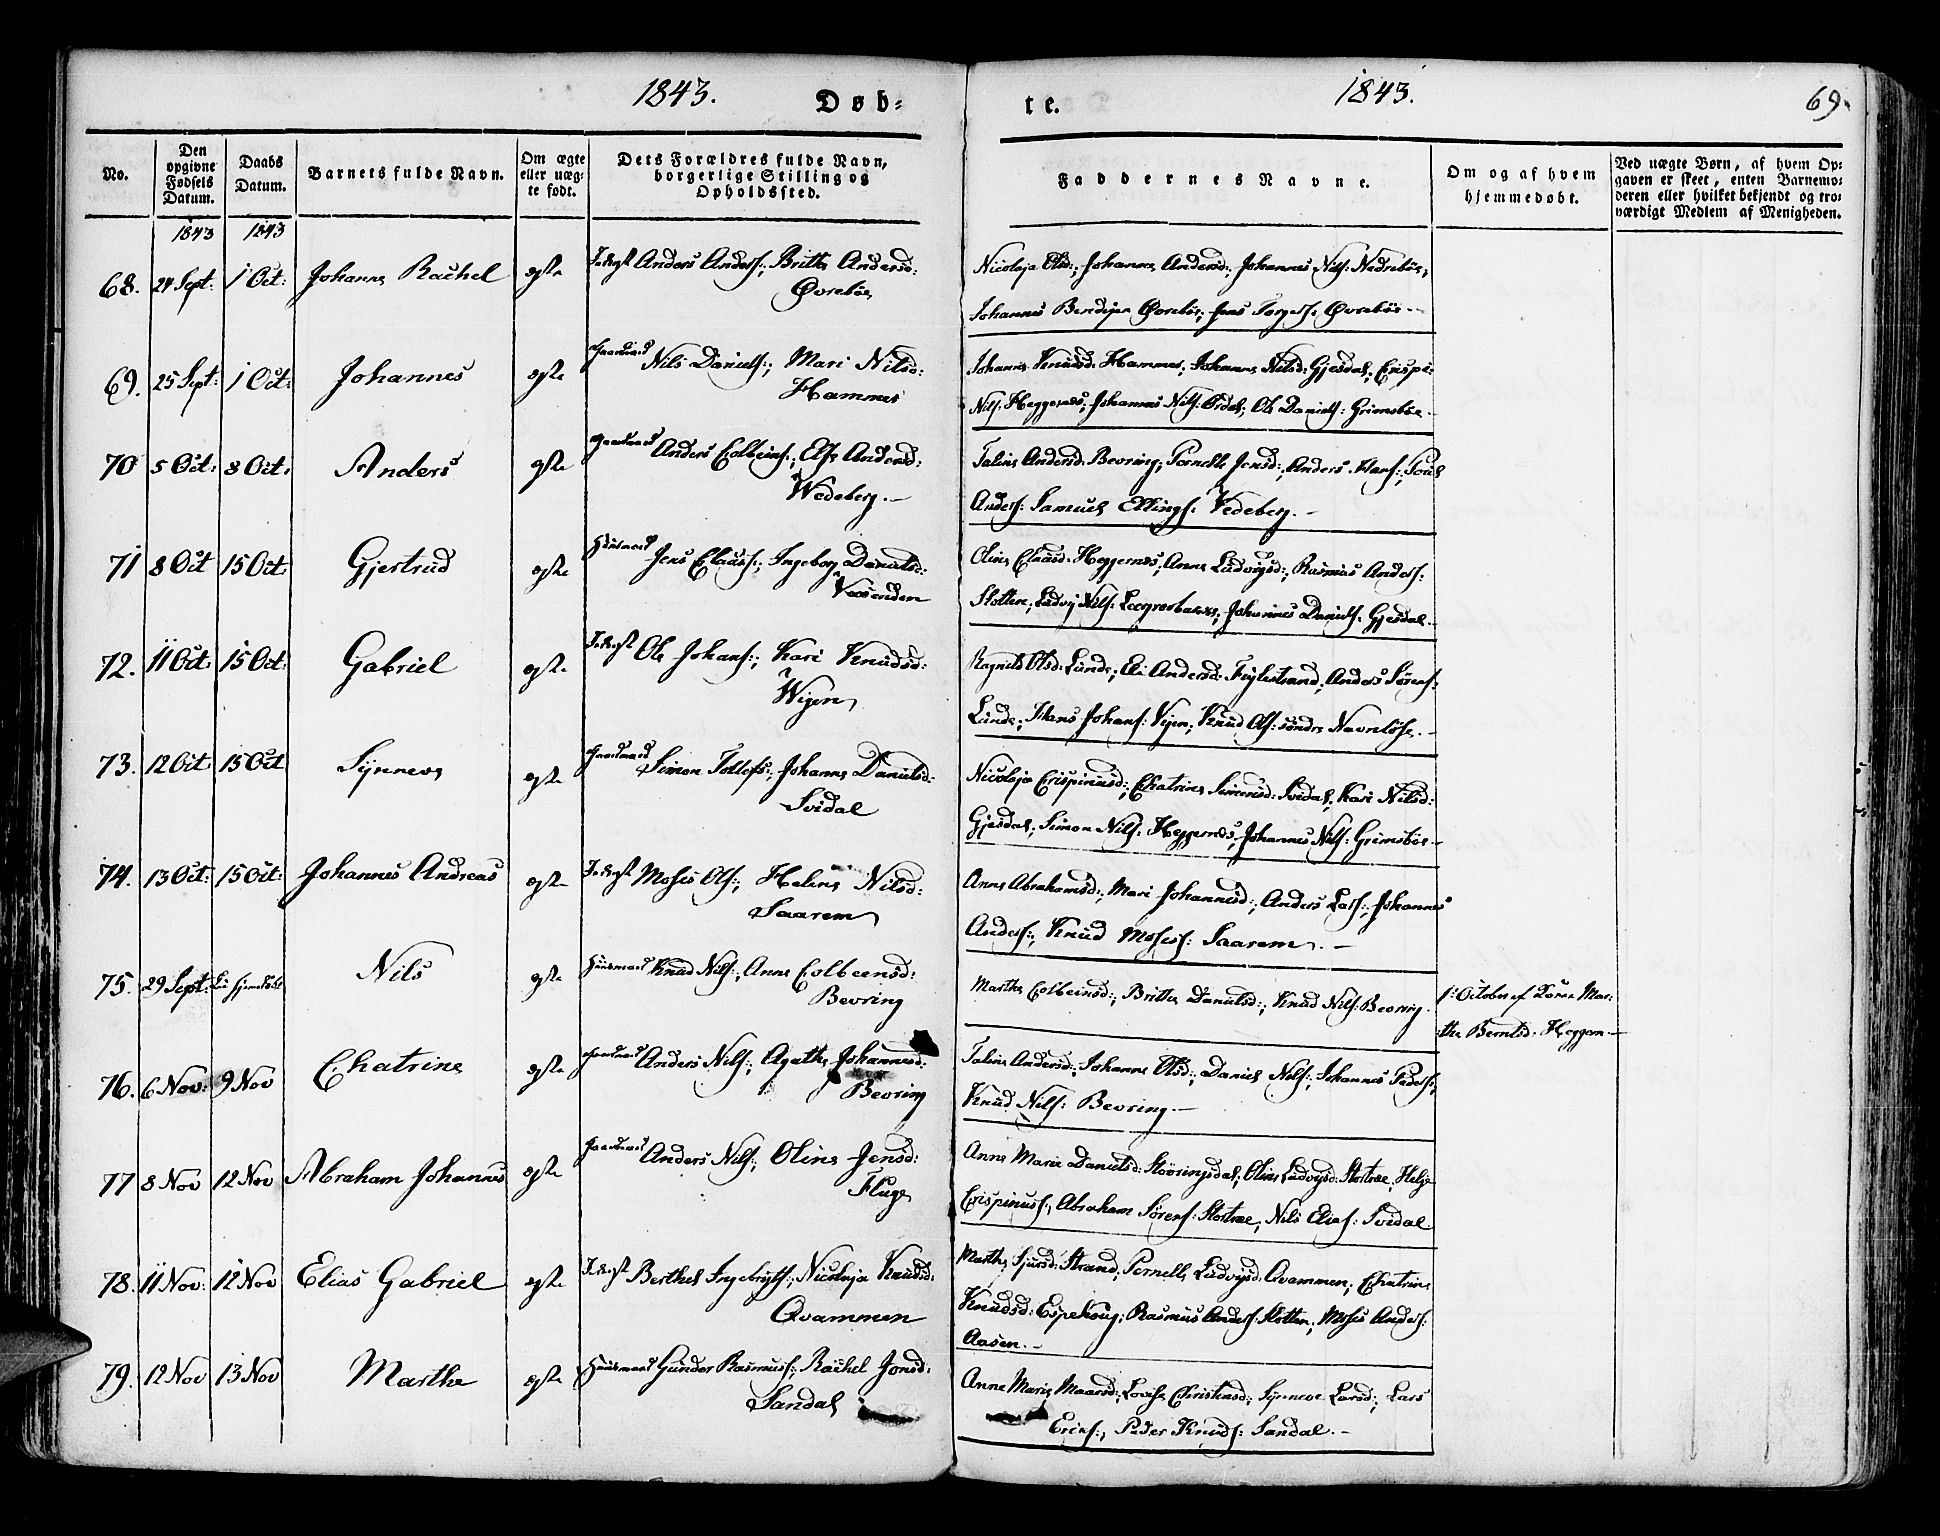 1843. Døb=
te. 1843. 69.
No.
Den opgivne Fødsels Datum.
Daabs Datum.
Barnets fulde Navn.
Om ægte eller uæg-te født.
Dets Forældres fulde Navn, borgerlige Stilling og Opholdssted.
Faddernes Navne.
Om og af hvem hjemmedøbt.
Ved uægte Børn, af hvem Op-gaven er skeet, enten Barnemo-deren eller hvilket bekjendt og tro-værdigt Medlem af Menigheden.
1843 1843
68. 24 Sept: 1 Oct: Johanne Rachel egte Anders Anders:; Britte Andersd:
Øvrebøe
Nicolaja Olsd:; Johanne Andersd:; Johannes Nils: Nedrebøe;
Johannes Bendixen Øvrebøe; Jens Øvrebøe.
69. 25 Sept: 1 Oct: Johannes egte Gaardmand Nils Daniels:; Mari Nilsd:
Hammer
Johanne Knudsd: Hammer; Johanne Nilsd: Gjesdal; Crispi:
Nils: Heggenes; Johannes Nils: Årdal; Ole Daniels: Grimsbøe.
70 5 Oct: 8 Oct: Anders egte Gaardmand Anders Colbeins:; Else Andersd:
Wedeberg.
Taline Andersd: Bevring; Pernelle Jensd:; Anders Hans:; Poul
Anders: Samuel Ellings: Vedeberg.
71 8 Oct 15 Oct: Gjertrud egte Huusmand Jens Clauss:; Ingeborg Danielsd:
Vasenden
Oline Claasd: Heggenes; Anne Ludvigsd:; Rasmus Anders:
Slotten; Ludvig Nils: Johannes Daniels: Gjesdal.
72. 11 Oct: 15 Oct: Gabriel egte Ole Johans:; Kari Knudsd:
Wigen
Ragnild Olsd: Lunde; Eli Andersd: Anders Sørens:
Lunde; Hans Johans: Vigen; Knud Ols: søndre Navnløse.
73. 12 Oct: 15 Oct Synneve egte Gaardmand Simon Tollefs:; Johanne Danielsd:
Svidal
Nicolaja Crispinusd:; Chatrine Simonsd: Svidal; Kari Nilsd:
Gjesdal; Simon Nils: Heggenes; Johannes Nils: Grimsbøe.
74. 13 Oct: 15 Oct: Johannes Andreas egte Moses Ols:; Helene Nilsd:
Saarem
Anne Abrahamsd:; Mari Johannesd:; Anders Lars:; Johannes
Anders:; Knud Moses: Saarem.
75. 29 Sept: Nils egte Huusmand Knud Nils:; Anne Colbeensd:
Bevring
Marthe Colbeinsd:; Britte Danielsd:; Knud Nils: Bevring.
1: October af Kone Mar:
the Berntsd: Heggen
76. 6 Nov: 9 Nov Chatrine egte Gaardmand Anders Nils:; Agathe Johannesd:
Bevring
Taline Andersd:; Johanne Olsd:; Daniel Nils:; Johannes Peders:;
Knud Nils: Bevring.
77 8 Nov 12 Nov Abraham Johannes egte Gaardmand Anders Nils:; Oline Jensd:
Fluge
Anne Marie Danielsd: Støvringsdal; Oline Ludvigsd: Stortræe; Helje
Crispinus:; Abraham Sørens: Stortræe; Nils Elias: Svidal
78. 11 Nov: 12 Nov Elias Gabriel egte Berthel Ingebrigts:; Nicolaja Knudsd:
Qvammen
Marthe Sjursd: Strand; Pernelle Ludvigsd: Qvammen; Chatrine
Knudsd: Espehoug; Rasmus Anders: Slotten; Moses Anders:
Aasen.
79. 12 Nov 13 Nov Marthe egte Huusmand Gunder Rasmuss:; Rachel Jonsd:
Sandal
Anne Marie Maarsd:; Lovise Christensd:; Synneve Larsd:; Lars
Erics:; Peder Knuds: Sandal.